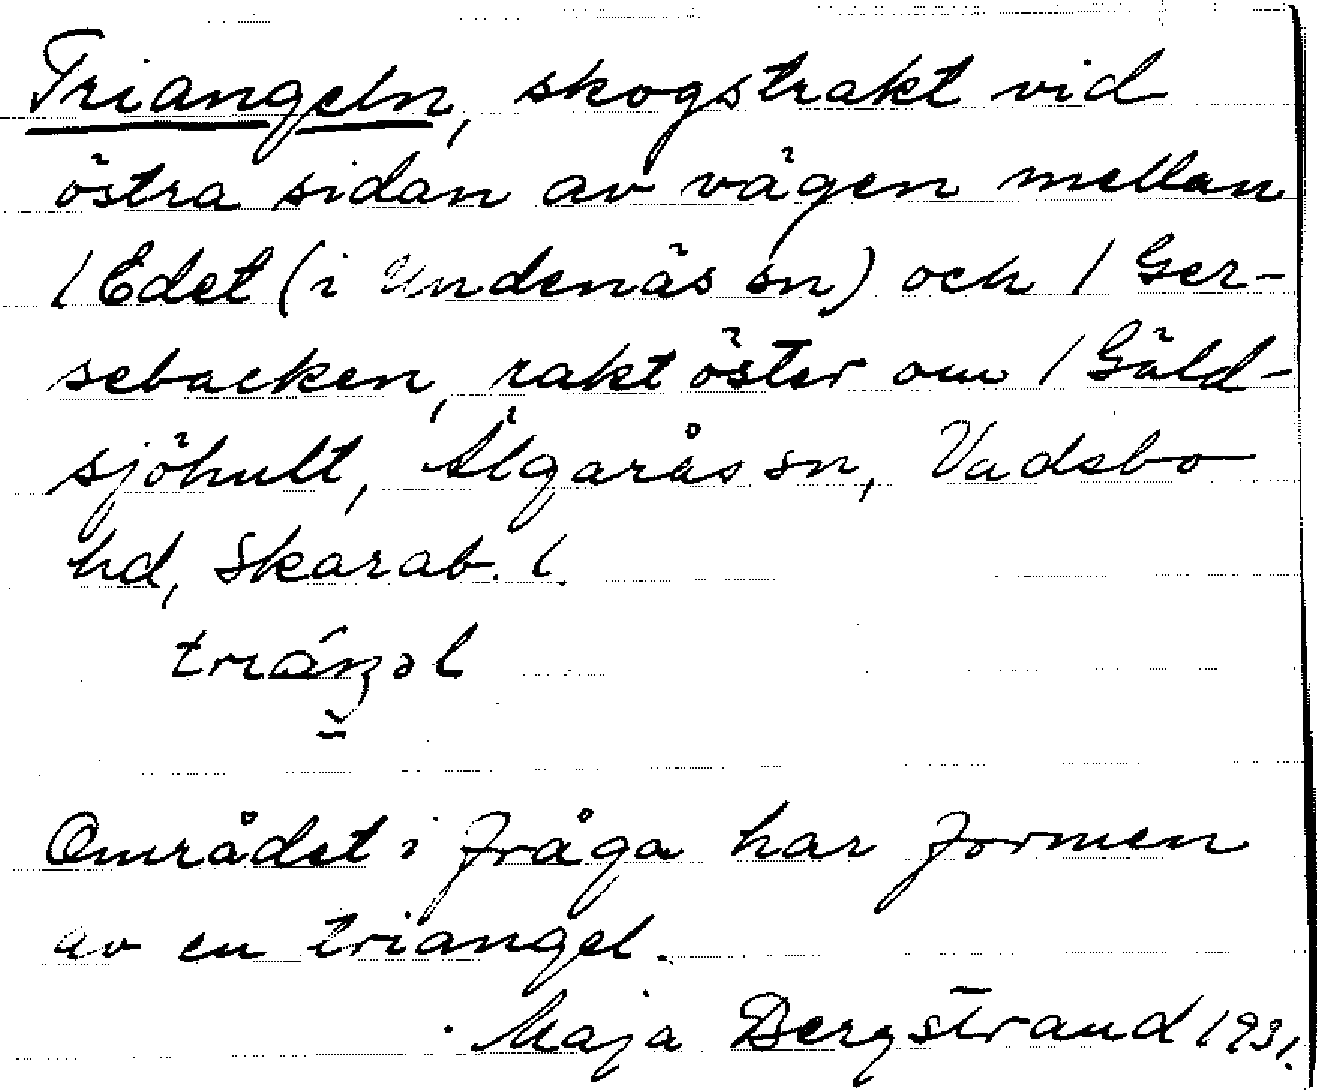 Triangeln, skogstrakt vid
östra sidan av vägen mellan
/ Edet (i Undenäs sn) och / Ger-
sebacken, rakt öster om / Gäld-
sjöhult, Älgarås sn, Vadsbo
hd, Skarab. l.
triáŋəl
Området i fråga har formen
av en triangel.
Maja Bergstrand 1931.